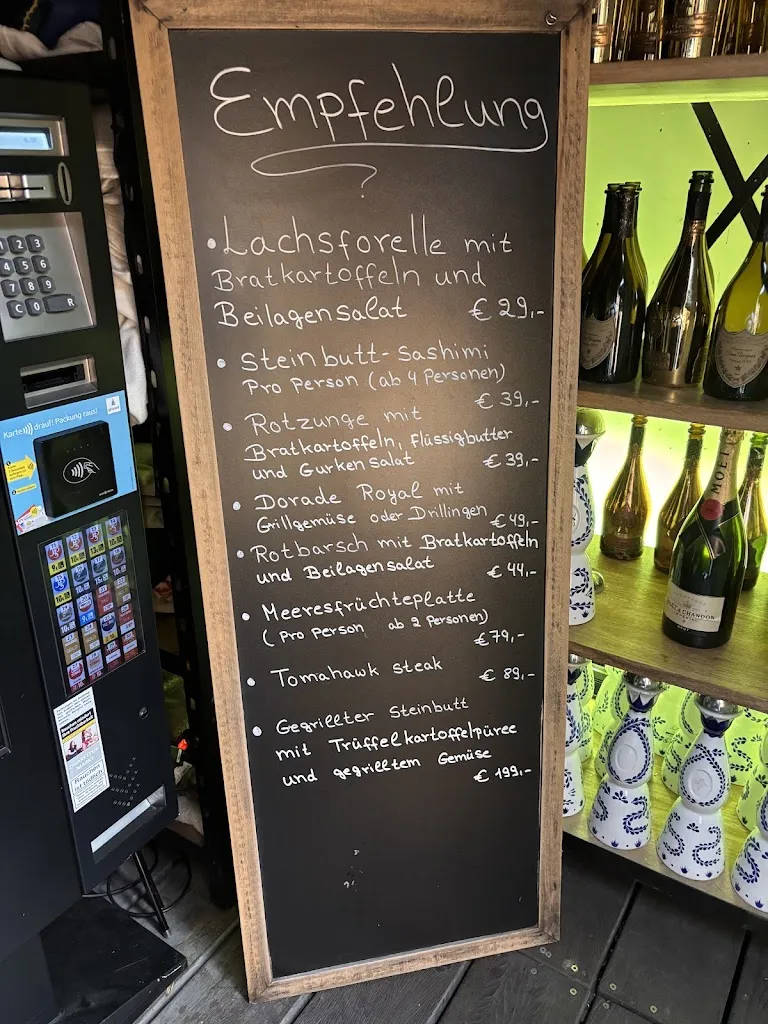 Empfehlung
• Lachsforelle mit
Bratkartoffeln und
Beilagensalat € 29,-
• Steinbutt-Sashimi
Pro Person (ab 4 Personen)
€ 39,-
• Rotzunge mit
Bratkartoffeln, flüssigbutter
und Gurkensalat € 39,-
• Dorade Royal mit
Grillgemüse oder Drillingen € 49,-
• Rotbarsch mit Bratkartoffeln
und Beilagensalat € 44,-
• Meeresfrüchteplatte
(Pro Person ab 2 Personen)
€ 79,-
• Tomahawk steak € 89,-
• Gegrillter Steinbutt
mit Trüffelkartoffelpüree
und gegrilltem Gemüse
€ 199,-
1 2 3
4 5 6
7 8 9
C 0 R
Karte drauf! Packung raus!
Rauchen
ist tödlich
MOËT
MOËT & CHANDON